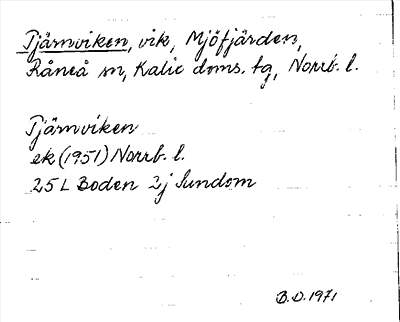 Tjärnviken, vik, Mjöfjärden,
Råneå sn, Kalix doms. tg, Norrb. l.
Tjärnviken
ek (1951) Norrb. l.
25 L Boden 2j Sundom
B.D. 1971